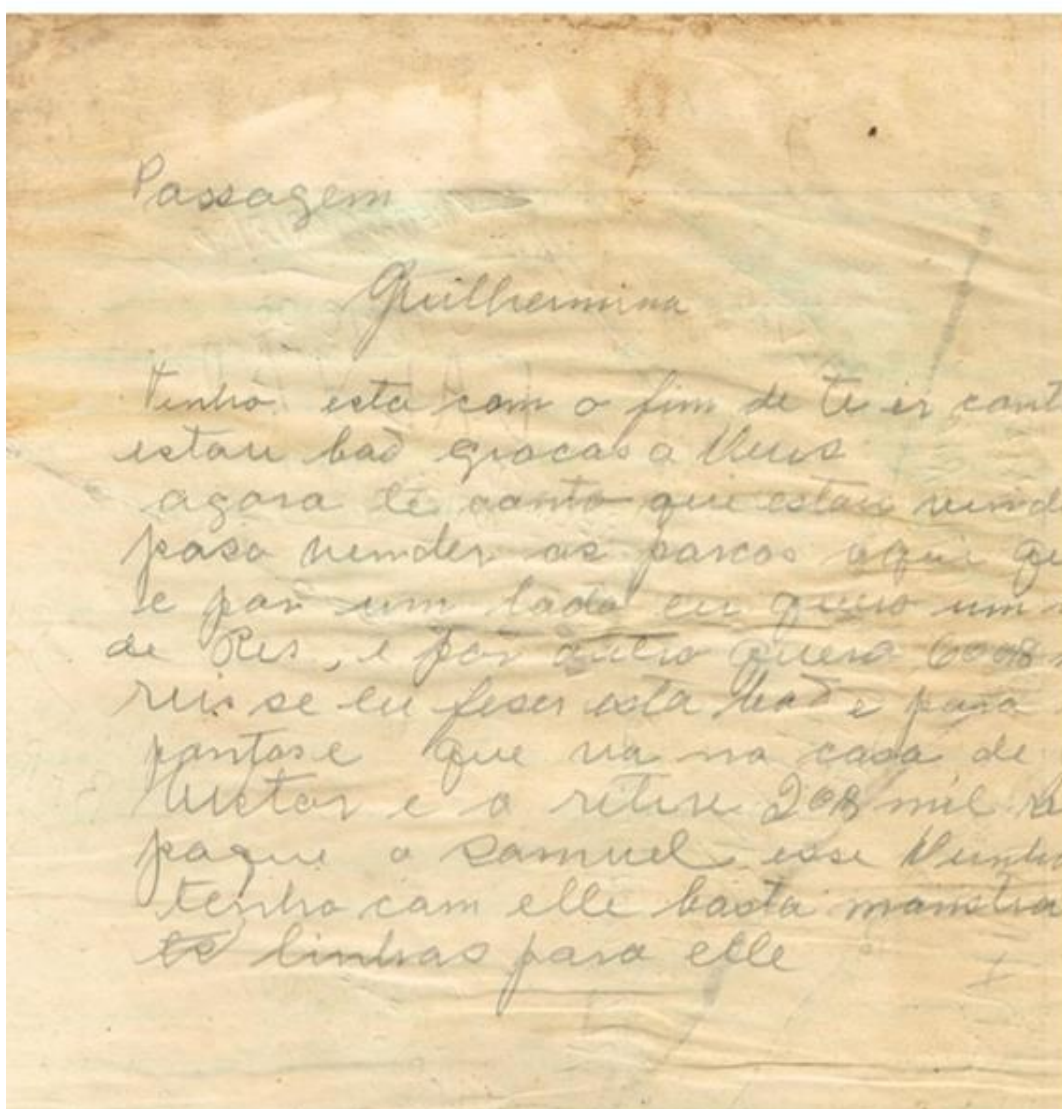 Passagem
Guilhermina
Venho esta com o fim de te er cont
estou bad gracas a Deus
agora te conto que estou vend
poso vender os parcos aqui qu
e por um lado eu quero um
de Res, e por outro quero 600$
reis se eu feser esta e para
que va na casa de
e o retire 20$ mil re
pague o Samuel esse
tenho com elle basta monstra
es linhas para elle